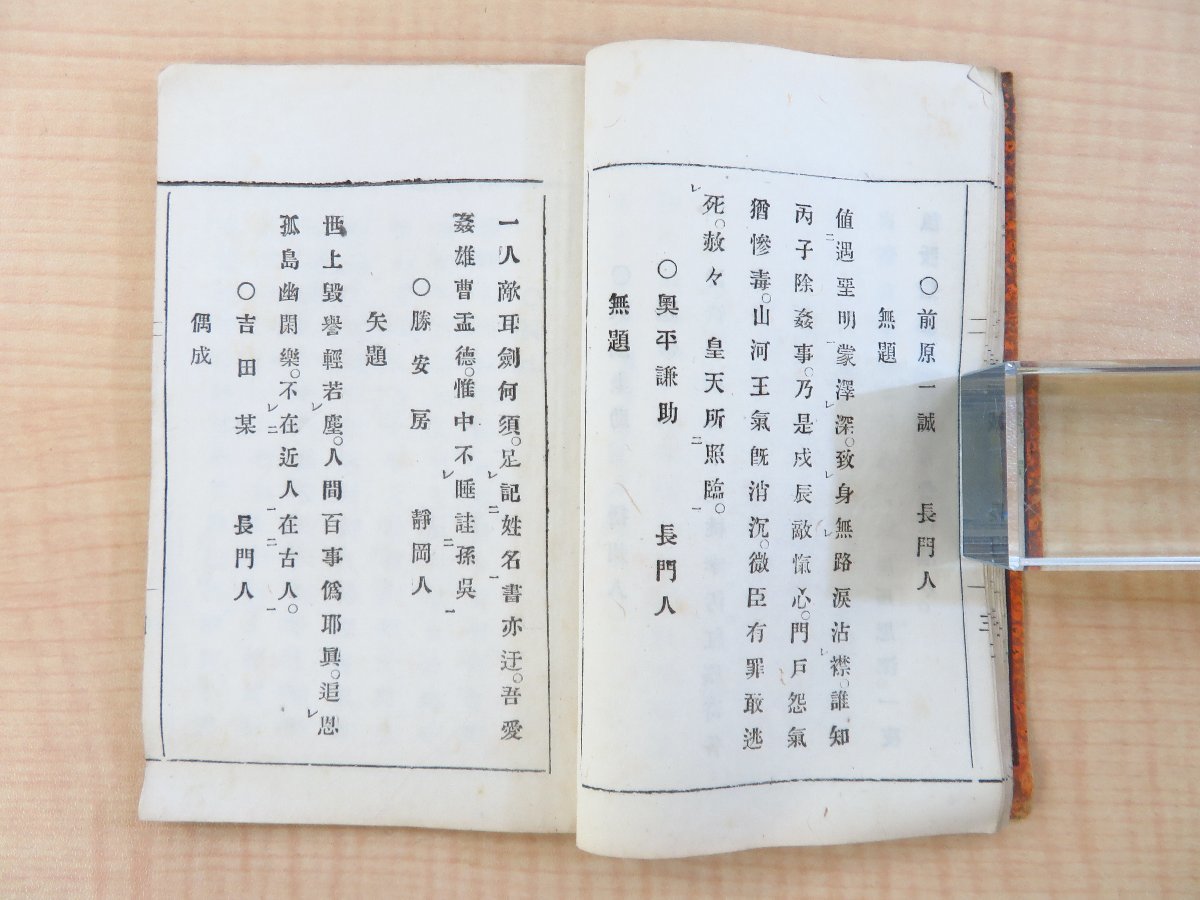 〇前原一誠 長門人
無題
値遇聖明蒙澤深。致身無路淚沾襟。誰知
丙子除姦事。乃是戍辰敵愾心。門戸怨氣
猶慘毒。山河王氣旣消沉。微臣有罪敢逃
死。赦々 皇天所照臨。
〇奥平謙助 長門人
無題
一人敵耳劍何須。足記姓名書亦迂。吾愛
姦雄曹孟德。惟中不睡註孫吳
〇勝安房 靜岡人
失題
世上毀譽輕若塵。人間百事僞耶眞。追思
孤島幽閑樂。不在近人在古人。
〇吉田某 長門人
偶成